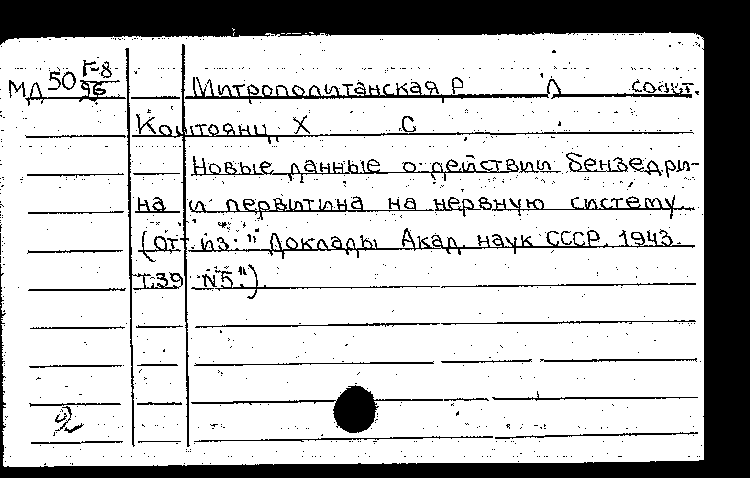 МД 50 Г-8/96 Митрополитанская, Р Л соавт.
Коштоянц, Х С
Новые данные о действии бензедри-
на и первитина на нервную систему
(отт. из: "Доклады Акад. наук СССР. 1943.
Т.39 №5.")
2